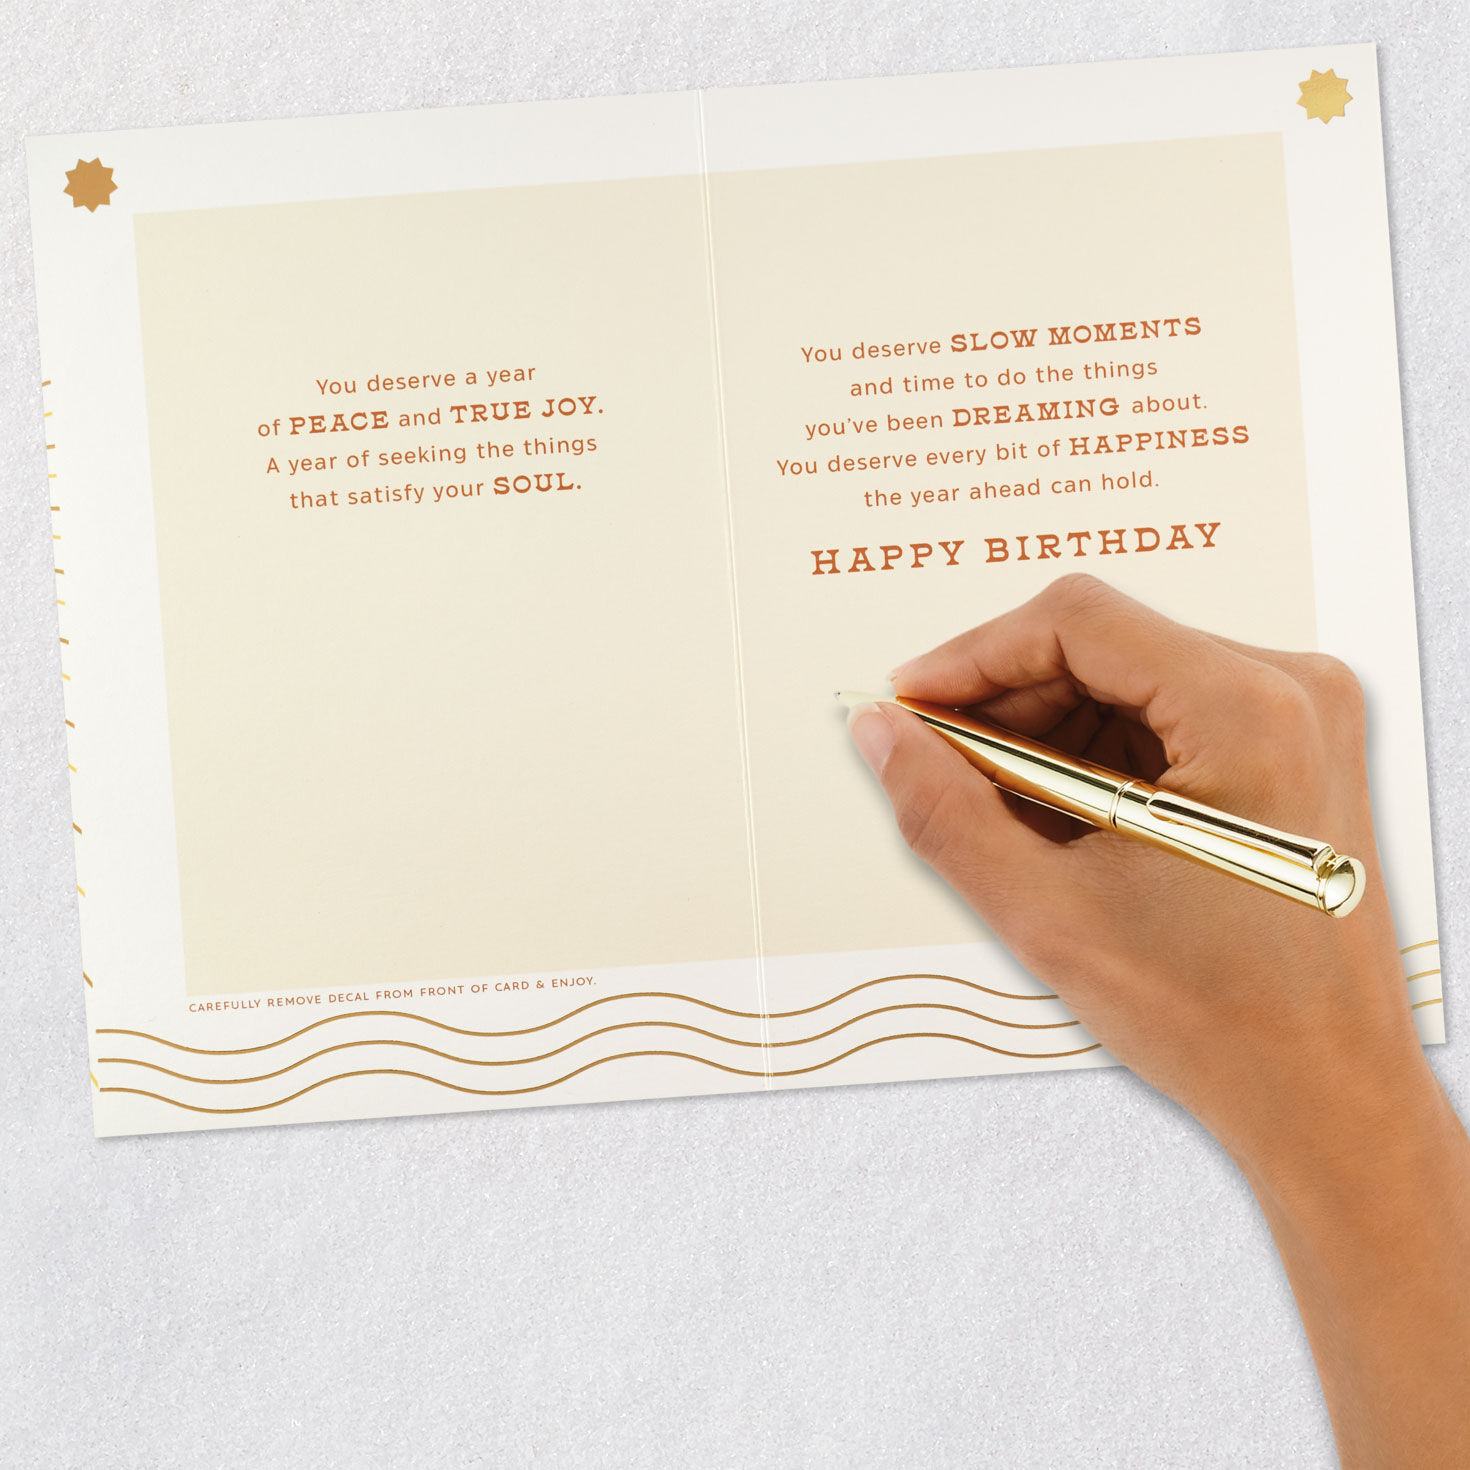 You deserve a year
of PEACE and TRUE JOY.
A year of seeking the things
that satisfy your SOUL.
CAREFULLY REMOVE DECAL FROM FRONT OF CARD & ENJOY.
You deserve SLOW MOMENTS
and time to do the things
you've been DREAMING about.
You deserve every bit of HAPPINESS
the year ahead can hold.
HAPPY BIRTHDAY